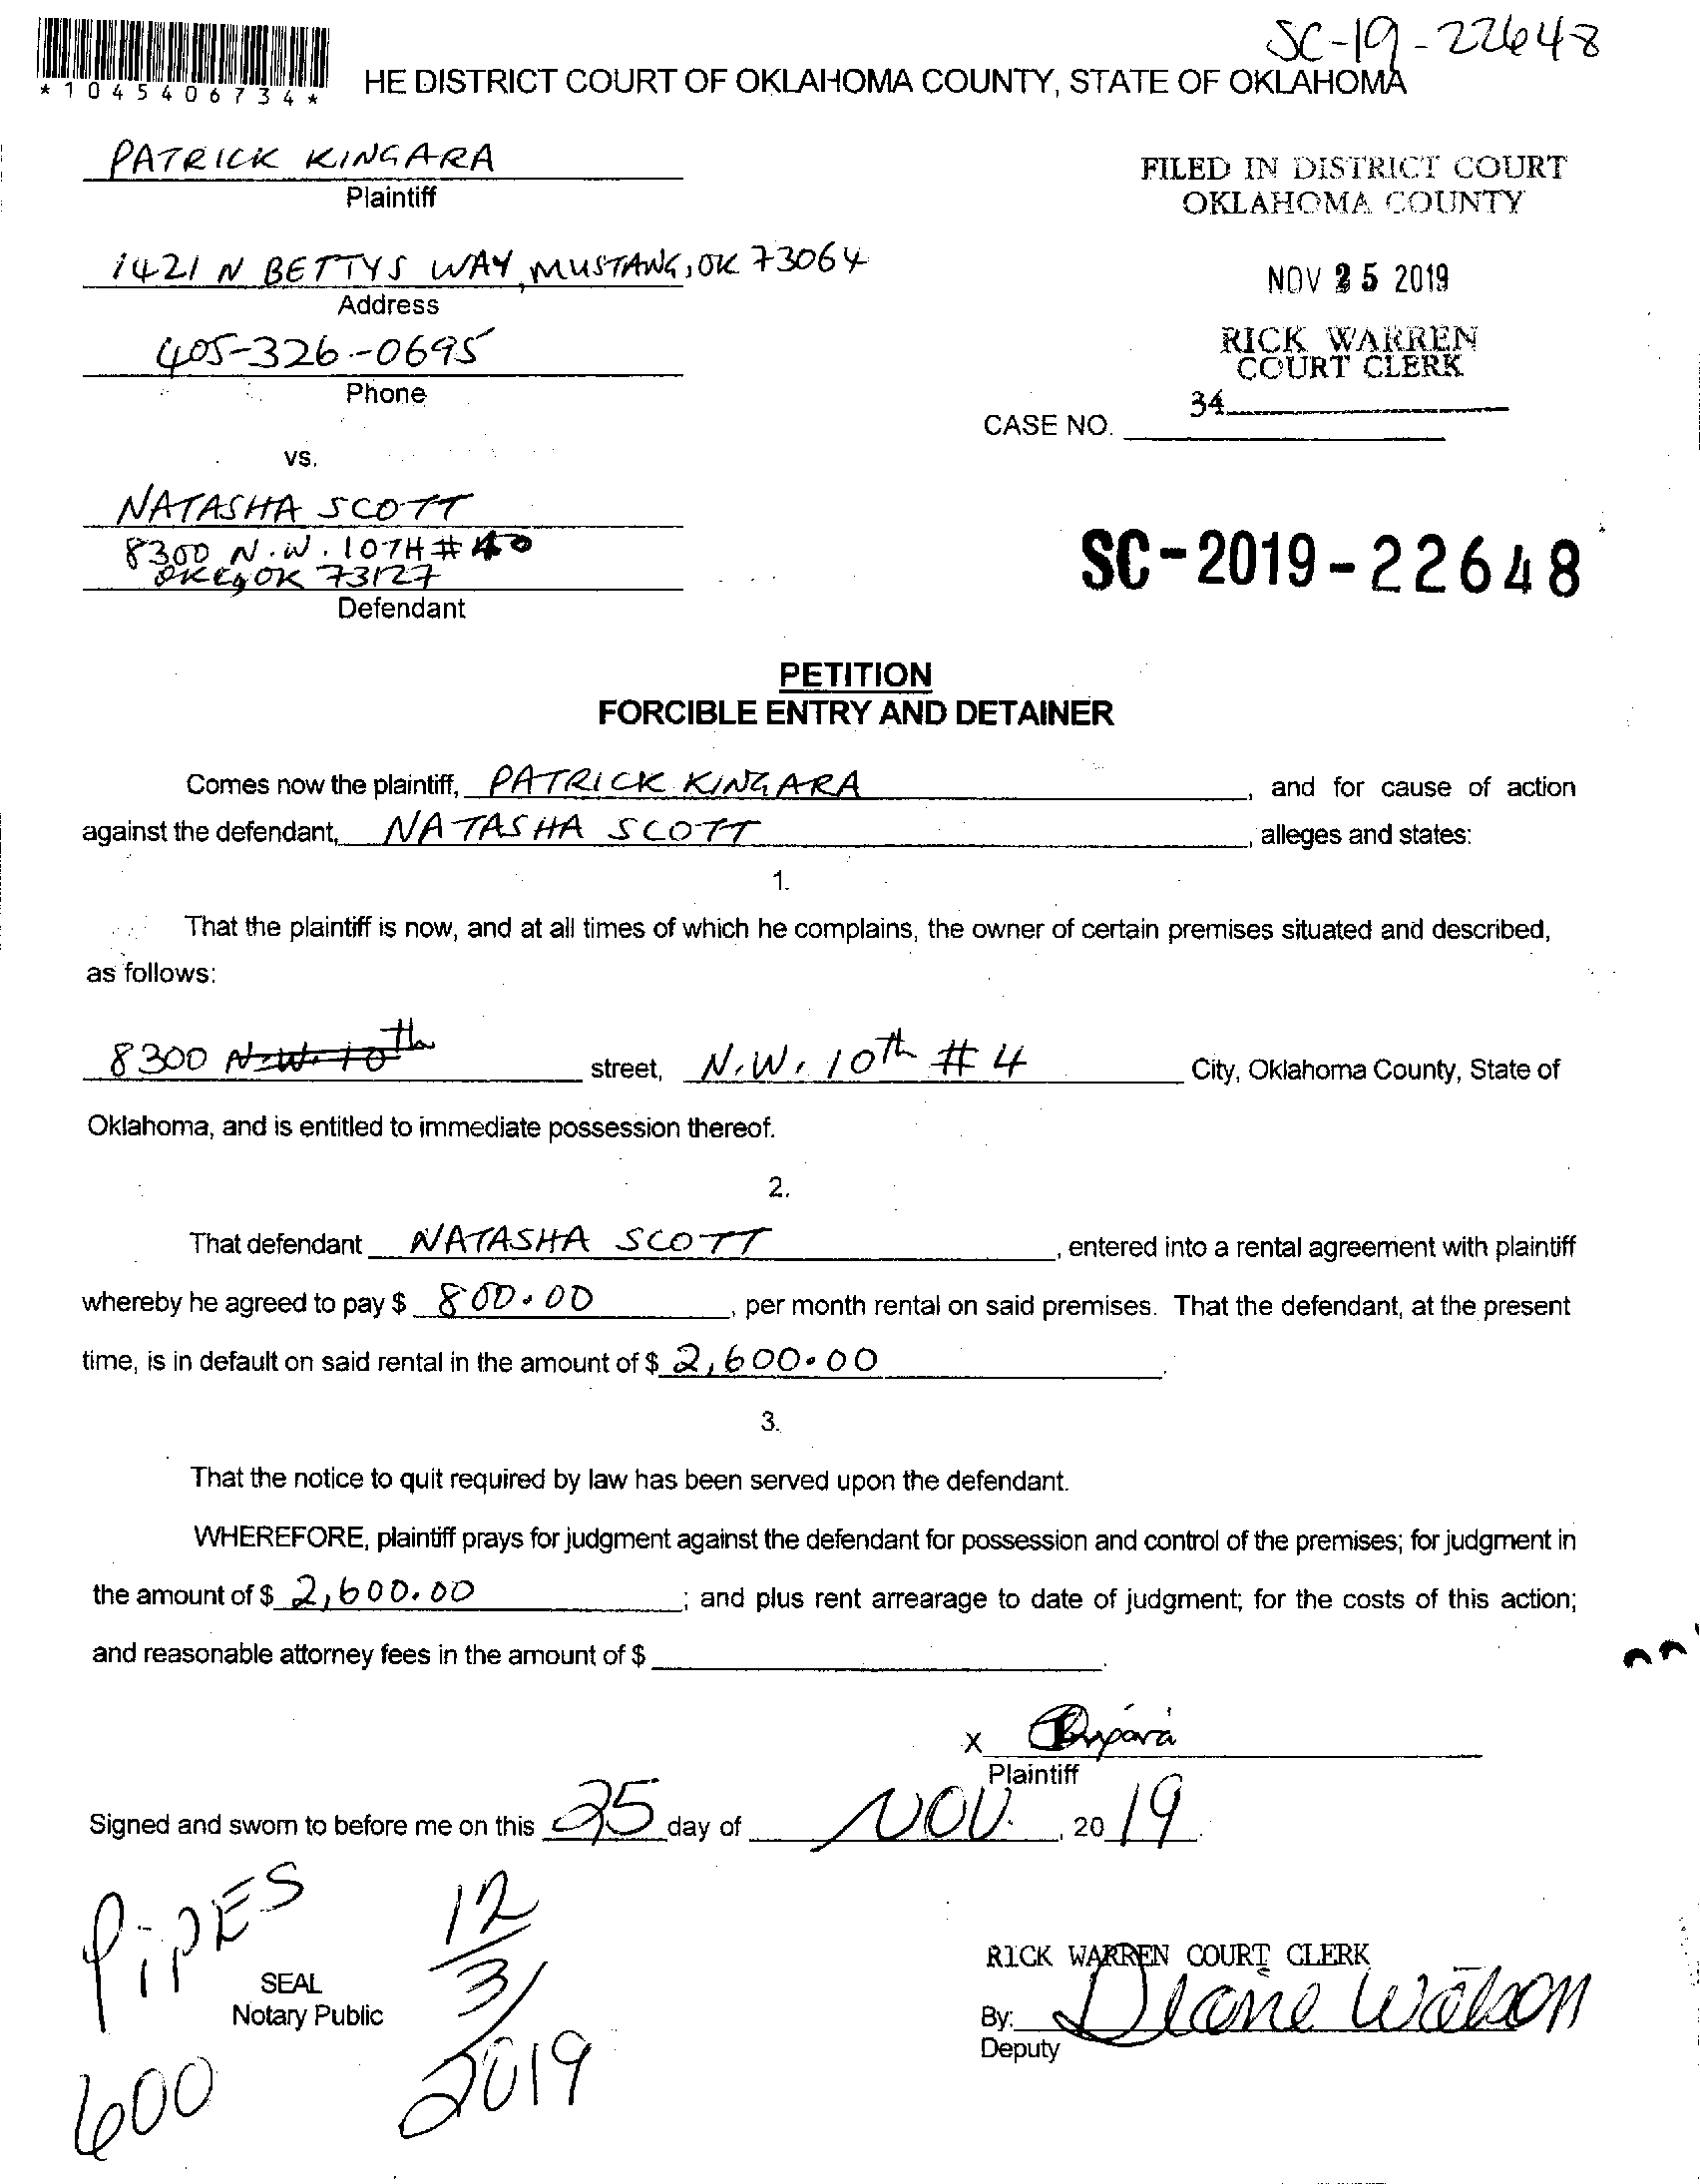 SC-19-22648
*1045406734*
HE DISTRICT COURT OF OKLAHOMA COUNTY, STATE OF OKLAHOMA
PATRICK KINGARA
Plaintiff
FILED IN DISTRICT COURT
OKLAHOMA COUNTY
1421 N BETTYS WAY, MUSTANG, OK 73064
Address
NOV 25 2019
405-326-0695
Phone
RICK WARREN
COURT CLERK
34
CASE NO.
vs.
NATASHA SCOTT
8300 N.W. 10TH #
OKC, OK 73127
Defendant
SC-2019-22648
PETITION
FORCIBLE ENTRY AND DETAINER
Comes now the plaintiff, PATRICK KINGARA, and for cause of action
against the defendant, NATASHA SCOTT, alleges and states:
1.
That the plaintiff is now, and at all times of which he complains, the owner of certain premises situated and described,
as follows:
8300 N.W. 10th street, N.W. 10th # 4 City, Oklahoma County, State of
Oklahoma, and is entitled to immediate possession thereof.
2.
That defendant NATASHA SCOTT, entered into a rental agreement with plaintiff
whereby he agreed to pay $ 800.00, per month rental on said premises. That the defendant, at the present
time, is in default on said rental in the amount of $ 2,600.00.
3.
That the notice to quit required by law has been served upon the defendant.
WHEREFORE, plaintiff prays for judgment against the defendant for possession and control of the premises; for judgment in
the amount of $ 2,600.00; and plus rent arrearage to date of judgment; for the costs of this action;
and reasonable attorney fees in the amount of $.
X
Plaintiff
Signed and sworn to before me on this 25 day of NOV., 2019.
PiPES
12/3/2019
SEAL
Notary Public
600
RICK WARREN COURT CLERK
By: Diane Watson
Deputy